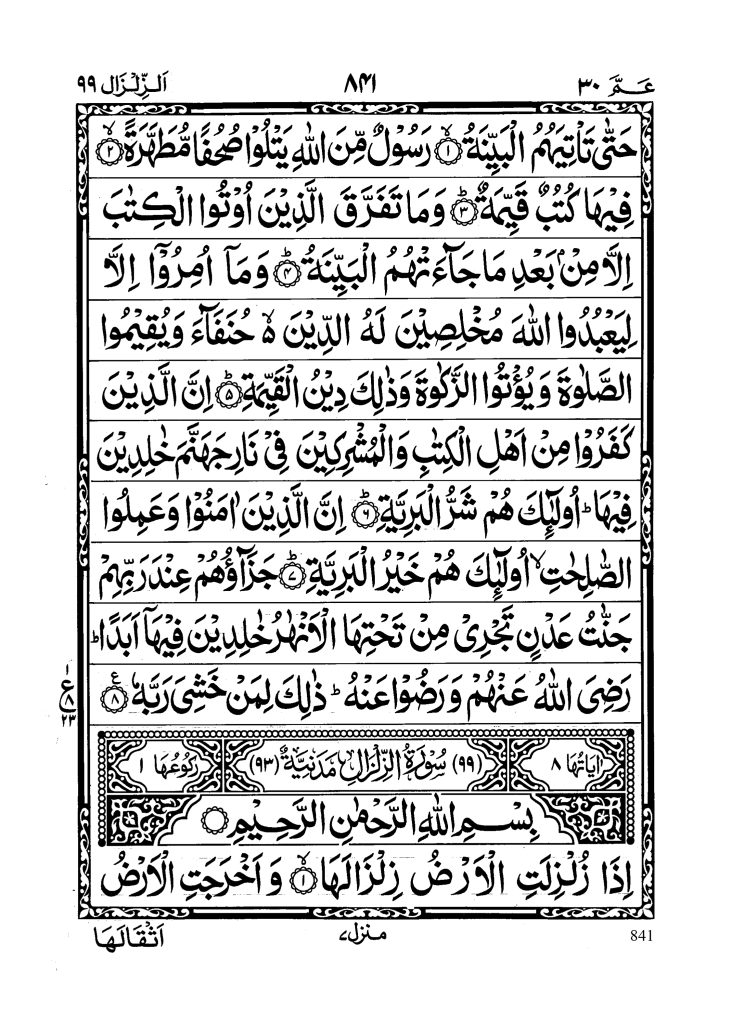 عَـمَّ ۳۰
۸۴۱
اَلزِّلْزَال ۹۹
حَتّٰى تَاْتِيَهُمُ الْبَيِّنَةُ ۙ﴿۱﴾ رَسُوْلٌ مِّنَ اللّٰهِ يَتْلُوْا صُحُفًا مُّطَهَّرَةً ۙ﴿۲﴾
فِيْهَا كُتُبٌ قَيِّمَةٌ ؕ﴿۳﴾ وَمَا تَفَرَّقَ الَّذِيْنَ اُوْتُوا الْكِتٰبَ
اِلَّا مِنْۢ بَعْدِ مَا جَآءَتْهُمُ الْبَيِّنَةُ ؕ﴿۴﴾ وَمَاۤ اُمِرُوْۤا اِلَّا
لِيَعْبُدُوا اللّٰهَ مُخْلِصِيْنَ لَهُ الدِّيْنَ ۙ۬ حُنَفَآءَ وَيُقِيْمُوا
الصَّلٰوةَ وَيُؤْتُوا الزَّكٰوةَ وَذٰلِكَ دِيْنُ الْقَيِّمَةِ ؕ﴿۵﴾ اِنَّ الَّذِيْنَ
كَفَرُوْا مِنْ اَهْلِ الْكِتٰبِ وَالْمُشْرِكِيْنَ فِيْ نَارِ جَهَنَّمَ خٰلِدِيْنَ
فِيْهَا ؕ اُولٰٓئِكَ هُمْ شَرُّ الْبَرِيَّةِ ؕ﴿۶﴾ اِنَّ الَّذِيْنَ اٰمَنُوْا وَعَمِلُوا
الصّٰلِحٰتِ ۙ اُولٰٓئِكَ هُمْ خَيْرُ الْبَرِيَّةِ ؕ﴿۷﴾ جَزَآؤُهُمْ عِنْدَ رَبِّهِمْ
جَنّٰتُ عَدْنٍ تَجْرِيْ مِنْ تَحْتِهَا الْاَنْهٰرُ خٰلِدِيْنَ فِيْهَاۤ اَبَدًا ؕ
رَضِيَ اللّٰهُ عَنْهُمْ وَرَضُوْا عَنْهُ ؕ ذٰلِكَ لِمَنْ خَشِيَ رَبَّهٗ ﴿۸﴾ ع
۱
ع ۸
۲۳
اٰيَاتُهَا ۸
(۹۹) سُوْرَةُ الزِّلْزَالِ مَدَنِيَّةٌ (۹۳)
رُكُوْعُهَا ۱
بِسْمِ اللّٰهِ الرَّحْمٰنِ الرَّحِيْمِ
اِذَا زُلْزِلَتِ الْاَرْضُ زِلْزَالَهَا ۙ﴿۱﴾ وَاَخْرَجَتِ الْاَرْضُ
اَثْقَالَهَا
منزل ۷
841